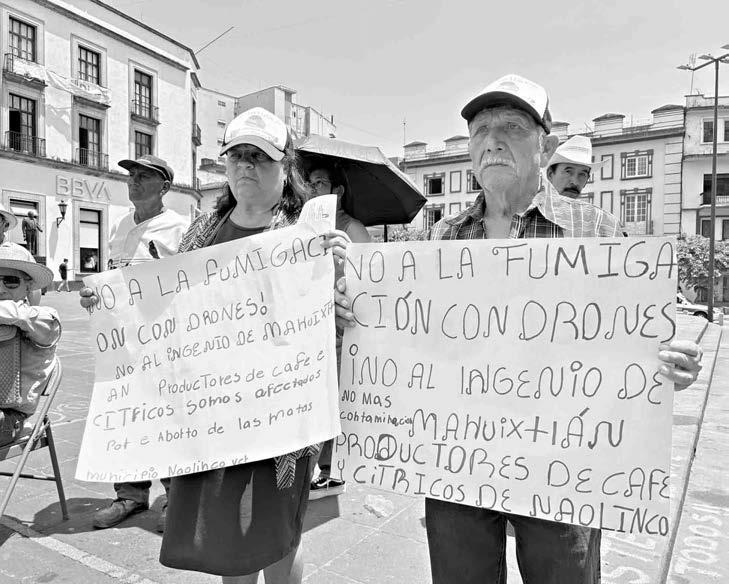 BBVA
NO A LA FUMIGACI
ON CON DRONES!
NO AL INGENIO DE MAHUIXTI
AN PRODUCTORES DE CAFE E
CITRICOS SOMOS AFECTADOS
POR e ABORTO de las MATAS
municipio NAOLINCO ver
NO A LA FUMIGA
CIÓN CON DRONES
¡NO AL INGENIO DE
NO MAS
contaminacion MAHUIXTIÁN
PRODUCTORES DE CAFE
Y CÍTRICOS DE NAOLINCO
TODOS